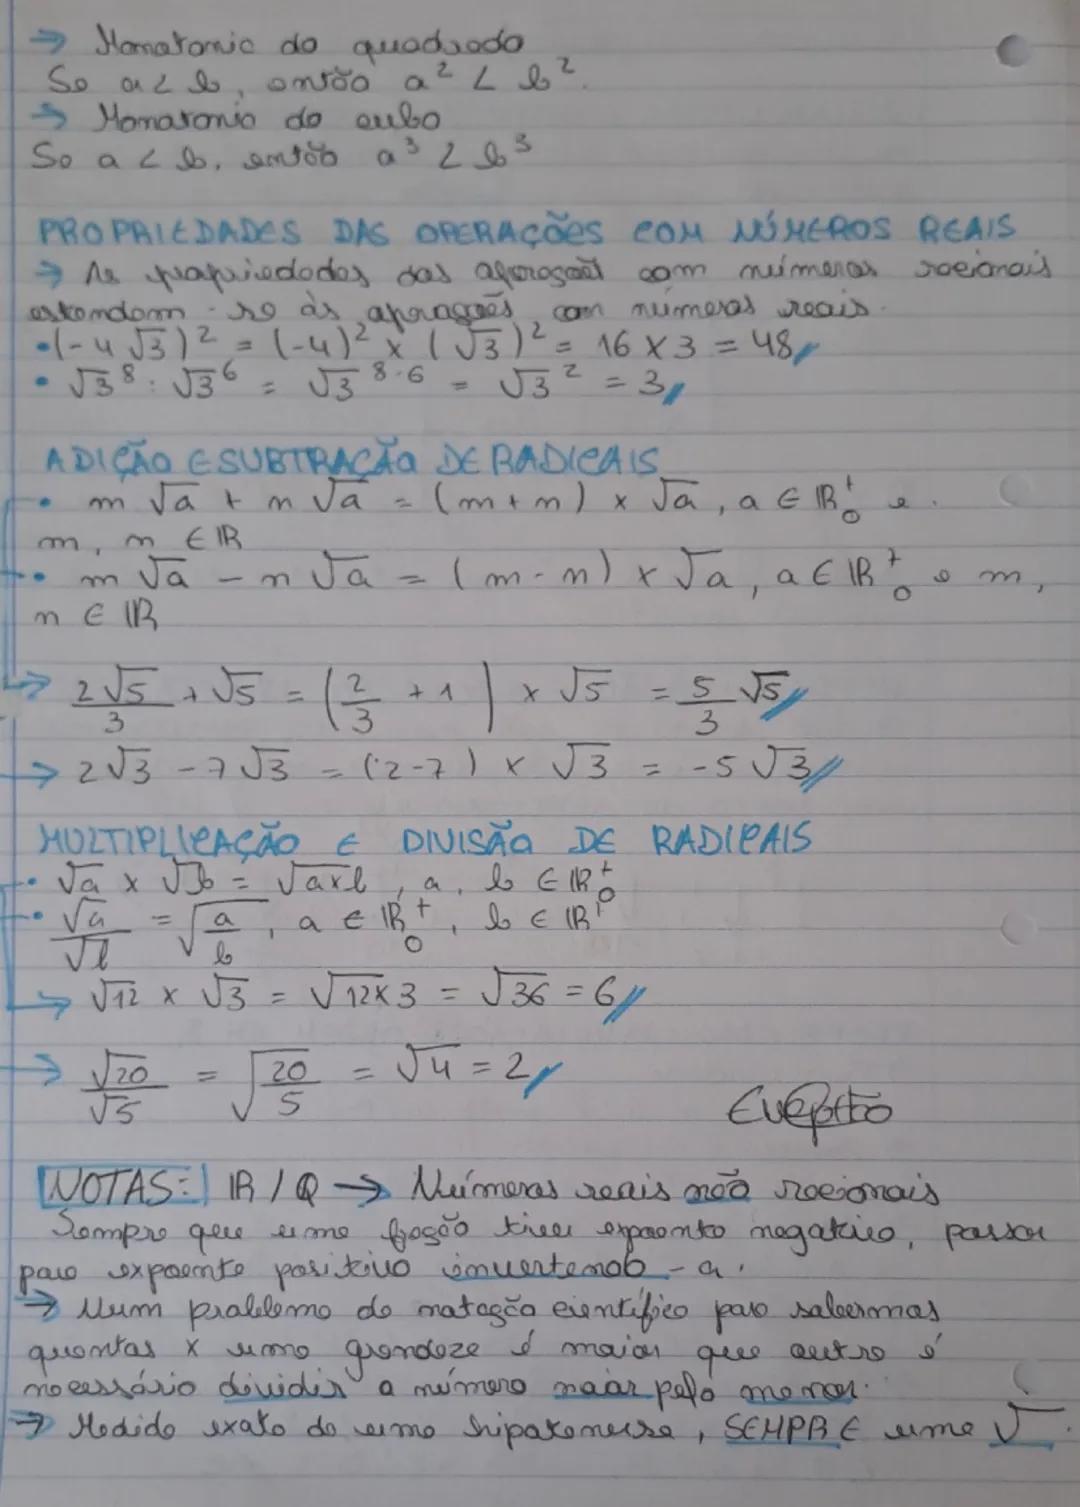 → Monotonia do quadrado
Se a < b, então a² < b².
→ Monotonia do cubo
Se a < b, então a³ < b³
PROPRIEDADES DAS OPERAÇÕES COM NÚMEROS REAIS
→ As propriedades das operações com números racionais
estendem-se às operações com números reais.
• (-4√3)² = (-4)² x (√3)² = 16 x 3 = 48
• √3⁸ : √3⁶ = √3⁸⁻⁶ = √3² = 3
ADIÇÃO E SUBTRAÇÃO DE RADICAIS
• m √a + n √a = (m+n) x √a, a ∈ IR₀⁺ e
m, n ∈ IR
• m √a - n √a = (m-n) x √a, a ∈ IR₀⁺ e m,
n ∈ IR
→ 2√5/3 + √5 = (2/3 + 1) x √5 = 5/3 √5
→ 2√3 - 7√3 = (2-7) x √3 = -5√3
MULTIPLICAÇÃO E DIVISÃO DE RADICAIS
• √a x √b = √axb, a, b ∈ IR₀⁺
• √a/√b = √a/b, a ∈ IR₀⁺, b ∈ IR⁺
→ √12 x √3 = √12x3 = √36 = 6
→ √20/√5 = √20/5 = √4 = 2
NOTAS: IR / Q → Números reais não racionais
Sempre que uma fração tiver expoente negativo, passar
para expoente positivo invertendo-a.
→ Num problema de notação científica para sabermos
quantas x uma grandeza é maior que outra é
necessário dividir o número maior pelo menor.
→ Medida exata de uma hipotenusa, SEMPRE uma √.